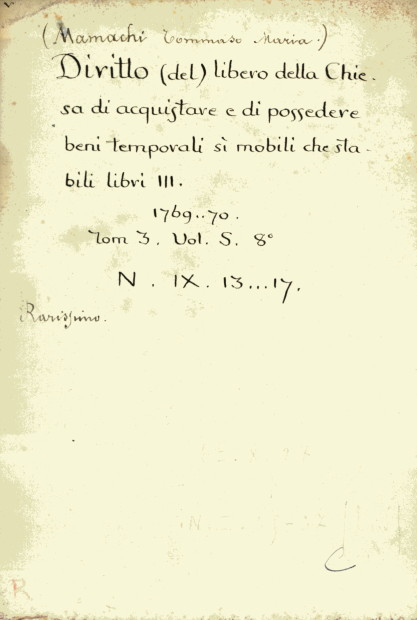 (Mamachi Tommaso Maria.)
Diritto (del) libero della Chie-
sa di acquistare e di possedere
beni temporali sì mobili che sta-
bili libri III.
1769..70.
Tom 3. Vol. 5. 8°
N. IX. 13...17.
Rarissimo.
R